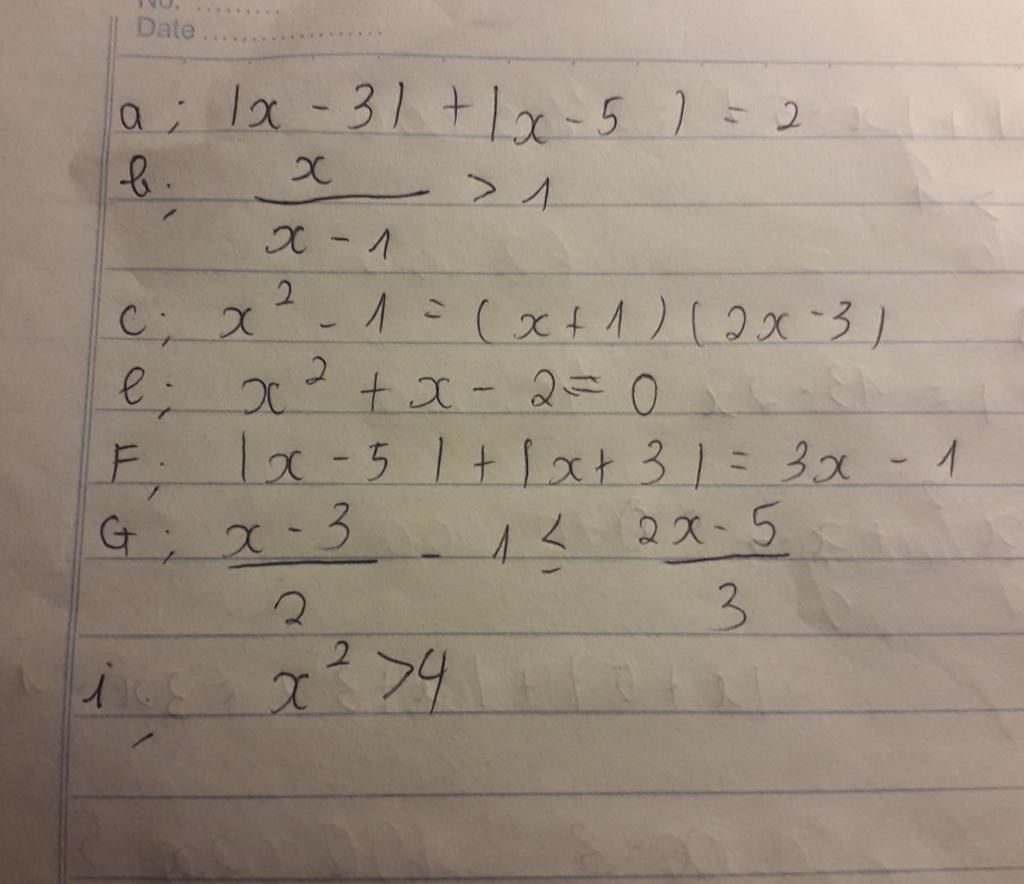 No. .........
Date ...................
a; |x - 3| + |x - 5| = 2
b; x/(x - 1) > 1
c; x² - 1 = (x + 1)(2x - 3)
e; x² + x - 2 = 0
F; |x - 5| + |x + 3| = 3x - 1
G; (x - 3)/2 - 1 ≤ (2x - 5)/3
i; x² > 4